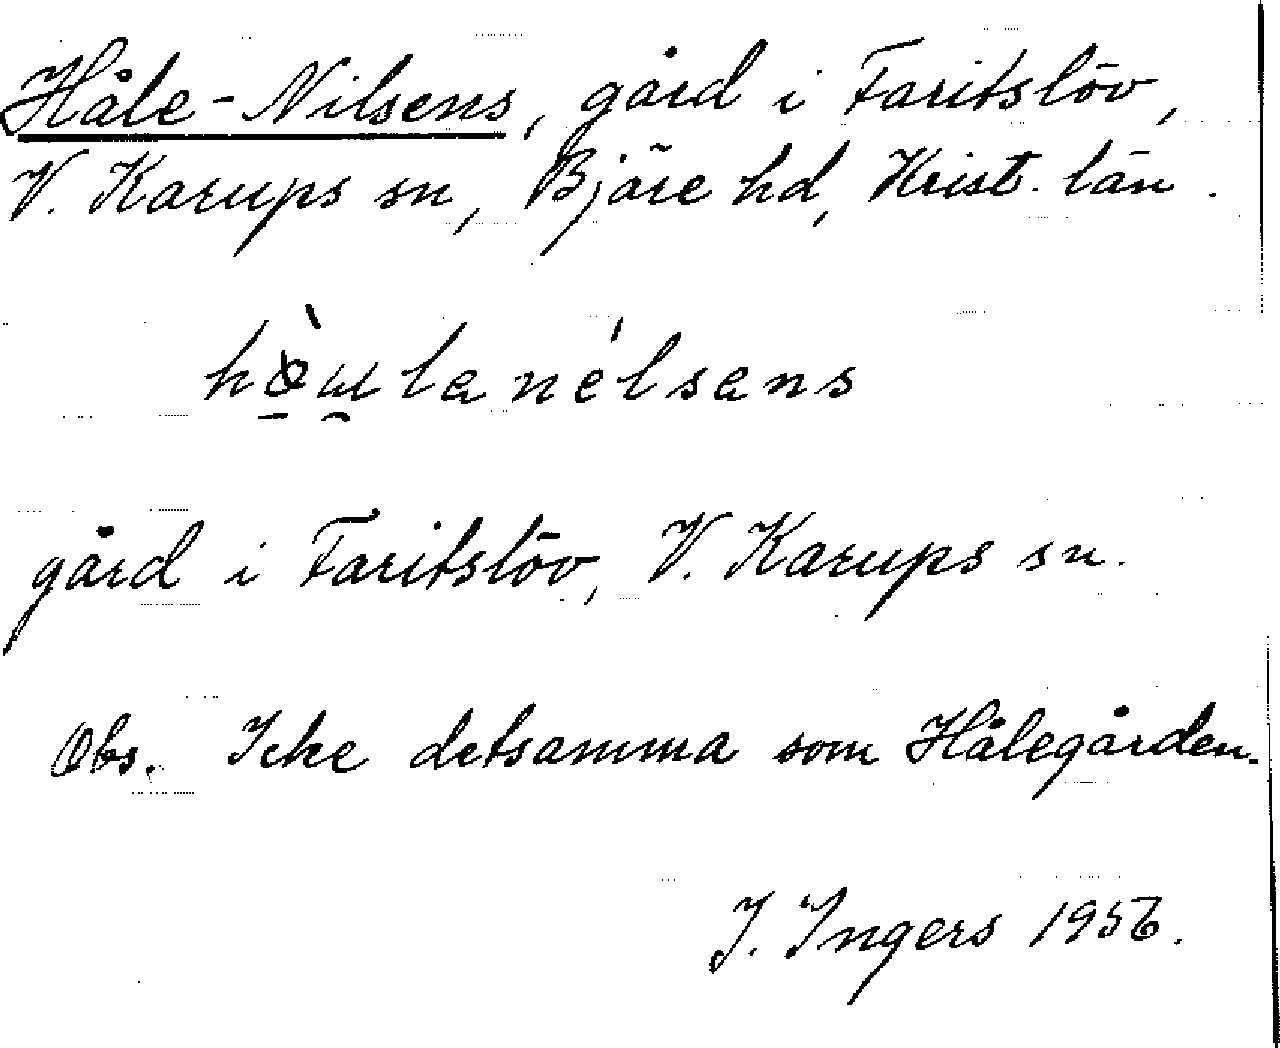 Håle-Nilsens, gård i Faritslöv,
V. Karups sn, Bjäre hd, Krist. län.
nélsens
gård i Faritslöv, V. Karups sn.
Obs. Icke detsamma som Hålegården.
I. Ingers 1956.